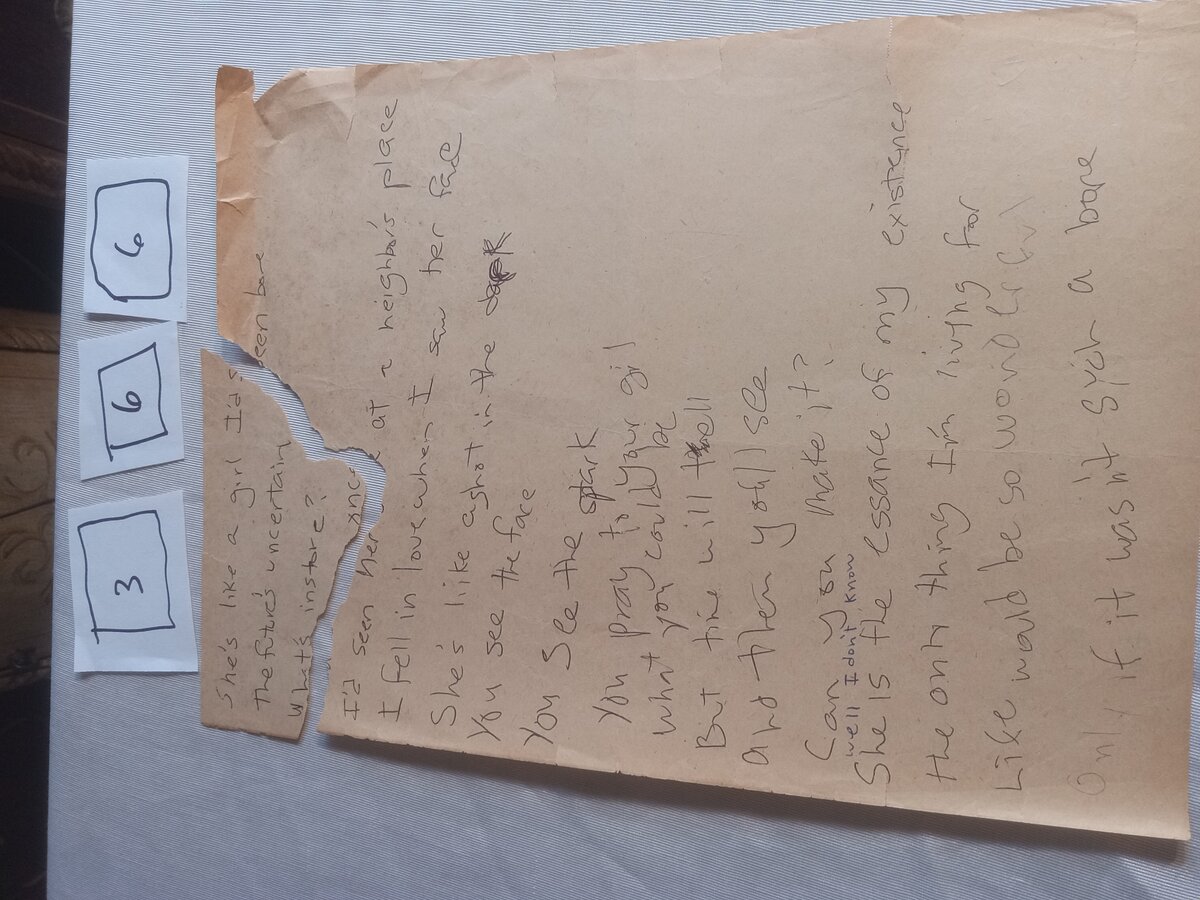 3 6 6
She's like a girl I'd been bore
the future's uncertain
What's instore?
I'd seen her once at a neighbor's place
I fell in love when I saw her face
She's like a shot in the dark
You see the face
You see the spark
You pray to your girl
what you could be
But time will tell
and then you'll see
Can you make it?
well I don't know
She is the essance of my existence
the only thing I'm living for
Life would be so wonderful
Only if it wasn't such a bore